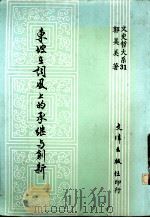 文史哲大系31
郭美美 著
東坡在詞風上的承繼與創新
文津出版社印行